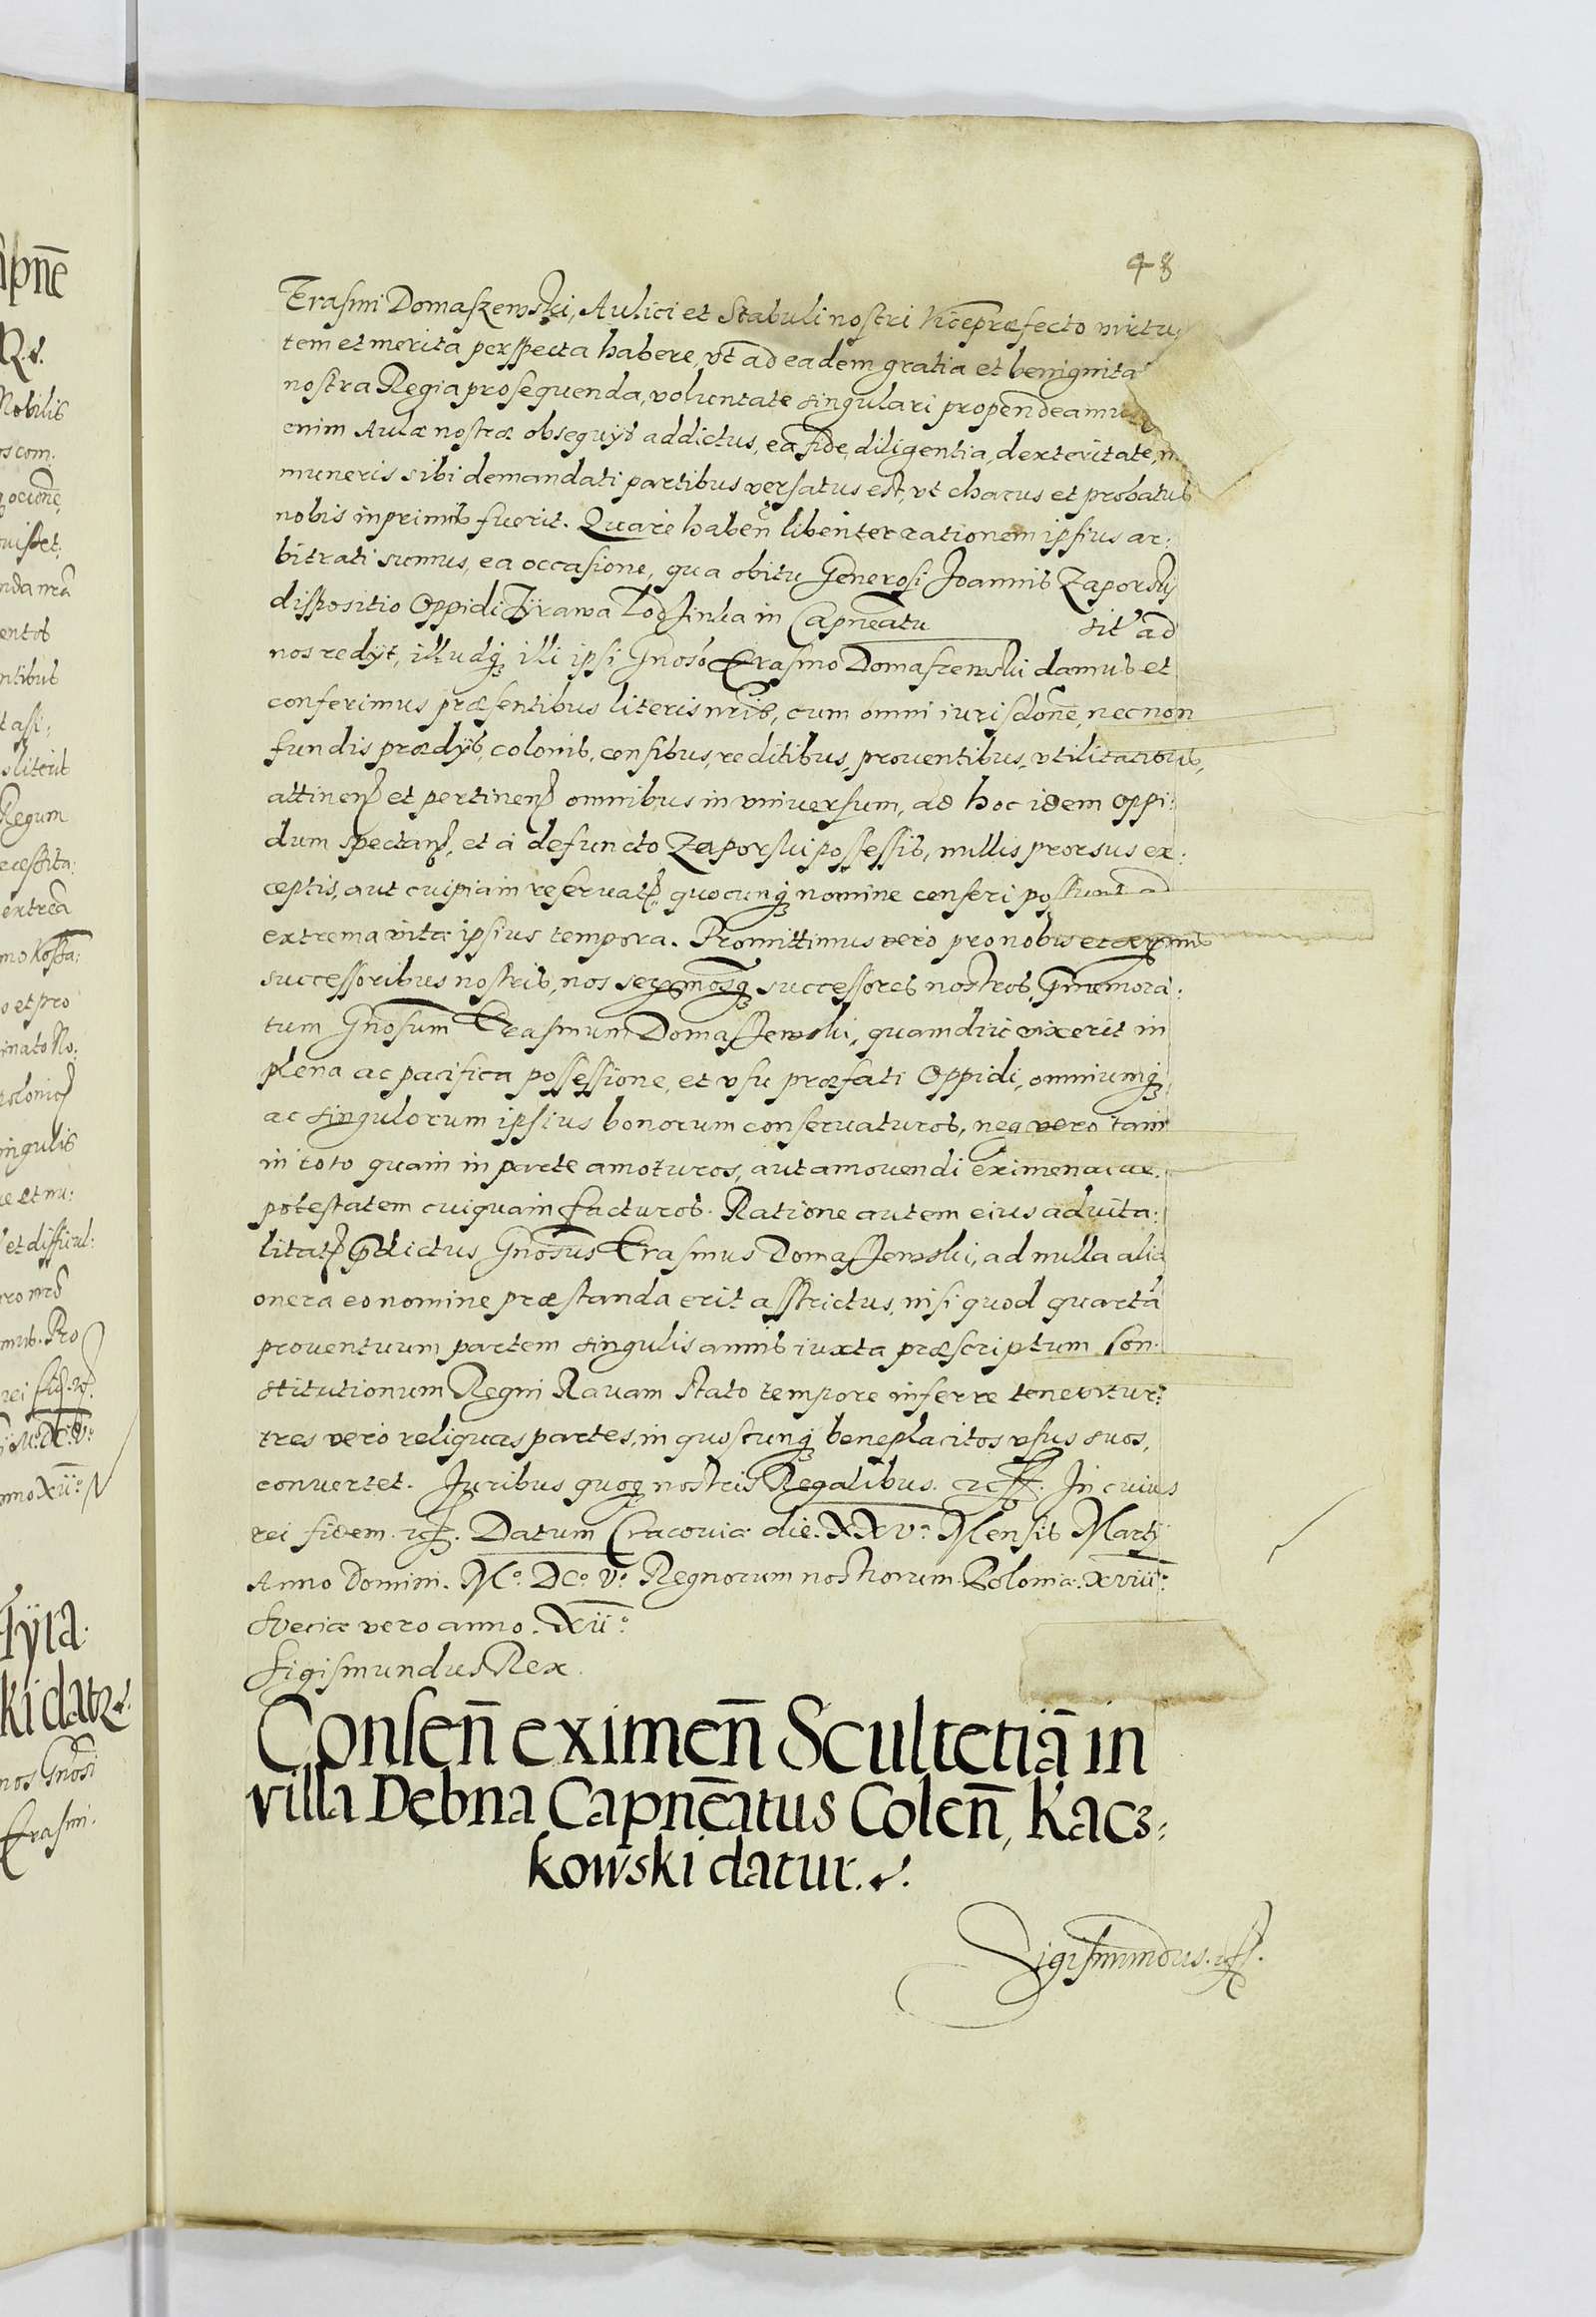 48
Erasmi Domaszewski, Aulici et Stabuli nostri Vicepræfecto virtu
tem et merita perspecta habere, vt ad eadem gratia et benignita
nostra Regia prosequenda, voluntate singulari propendeamus
enim Aulæ nostræ obsequijs addictus, ea fide, diligentia, dexteritate,
muneris sibi demandati partibus versatus est, vt charus et probatus
nobis inprimis fuerit. Quare haben̄ libenter rationem ipsius ar:
bitrati sumus, ea occasione, qua obitu Generosi Joannis Zaporski
dispositio Oppidi Tyrawa Lodzinka in Capneatu sit ad
nos redijt, illudq; illi ipsi Gnoso Erasmo Domaszewski damus et
conferimus præsentibus literis nris, cum omni iurisdone, necnon
fundis prædijs, colonis, censibus, reditibus, prouentibus, vtilitatibus,
attinen et pertinen omnibus in vniuersum, ad hoc idem oppi:
dum spectan, et à defuncto Zaporski possessis, nullis prorsus ex:
ceptis, aut cuipiam reseruat, quocunq; nomine censeri possunt ad
extrema vitæ ipsius tempora. Promittimus vero pro nobis et serx̄mis
successoribus nostris, nos serx̄mosq; successores nostros, p̄memora:
tum Gnosum Erasmum Domaszewski, quamdiu vixerit in
plena ac pacifica possessione, et vsu præfati Oppidi, omniumq;
ac singulorum ipsius bonorum conseruaturos, neq vero tam
in toto quam in parte amoturos, aut amouendi eximendiue
potestatem cuiquam facturos. Ratione autem eius aduita:
litat p̄dictus Gnosus Erasmus Domaszewski, ad nulla alia
onera eo nomine præstanda erit asstrictus, nisi quod quartā
prouentuum partem singulis annis iuxta præscriptum Con:
stitutionum Regni Rauam stato tempore inferre tenebitur:
tres vero reliquas partes, in quoscunq; beneplacitos vsus suos,
conuertet. Juribus quoq; nostris Regalibus. etc. In cuius
rei fidem. etc. Datum Cracouiæ die. XXV.a Mensis Martij
Anno Domini. Mo. DCo. Vo. Regnorum nostrorum Poloniæ. XVIIIo.
Sueciæ vero anno. XIIo.
Sigismundus Rex.
Consen̄ eximen̄ Scultetiā in
villa Dębna Capnēatus Colen̄, Kacz:
kowski datur.
Sigismundus.